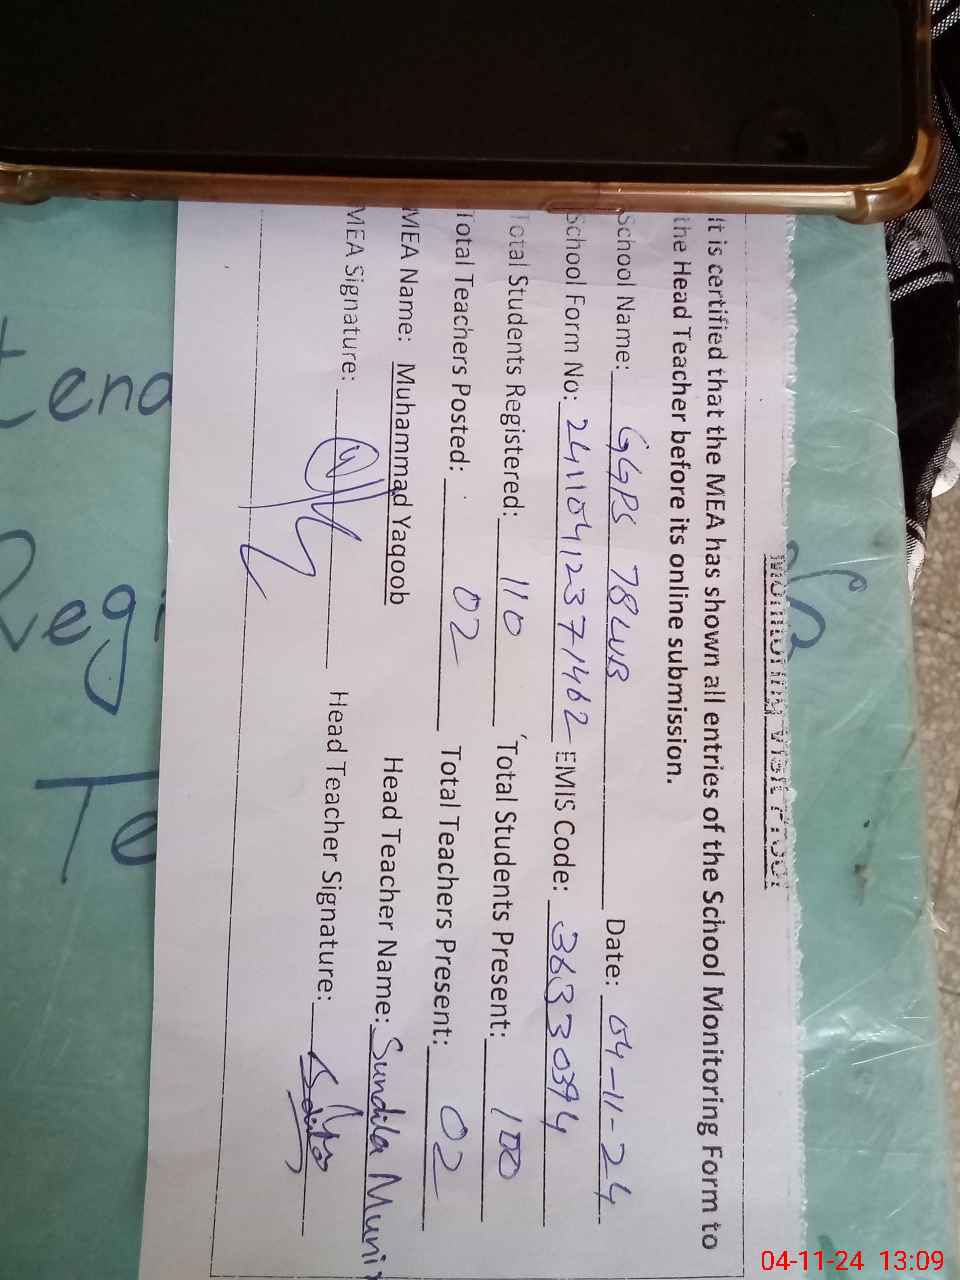 Monitoring Visit Proof
It is certified that the MEA has shown all entries of the School Monitoring Form to
the Head Teacher before its online submission.
School Name: GGPS 78LWB Date: 04-11-24
School Form No: 24110412371462 EMIS Code: 36330394
Total Students Registered: 110 Total Students Present: 100
Total Teachers Posted: 02 Total Teachers Present: 02
MEA Name: Muhammad Yaqoob Head Teacher Name: Sundila Munir
MEA Signature: Head Teacher Signature:
tend
Regi
Te
04-11-24 13:09